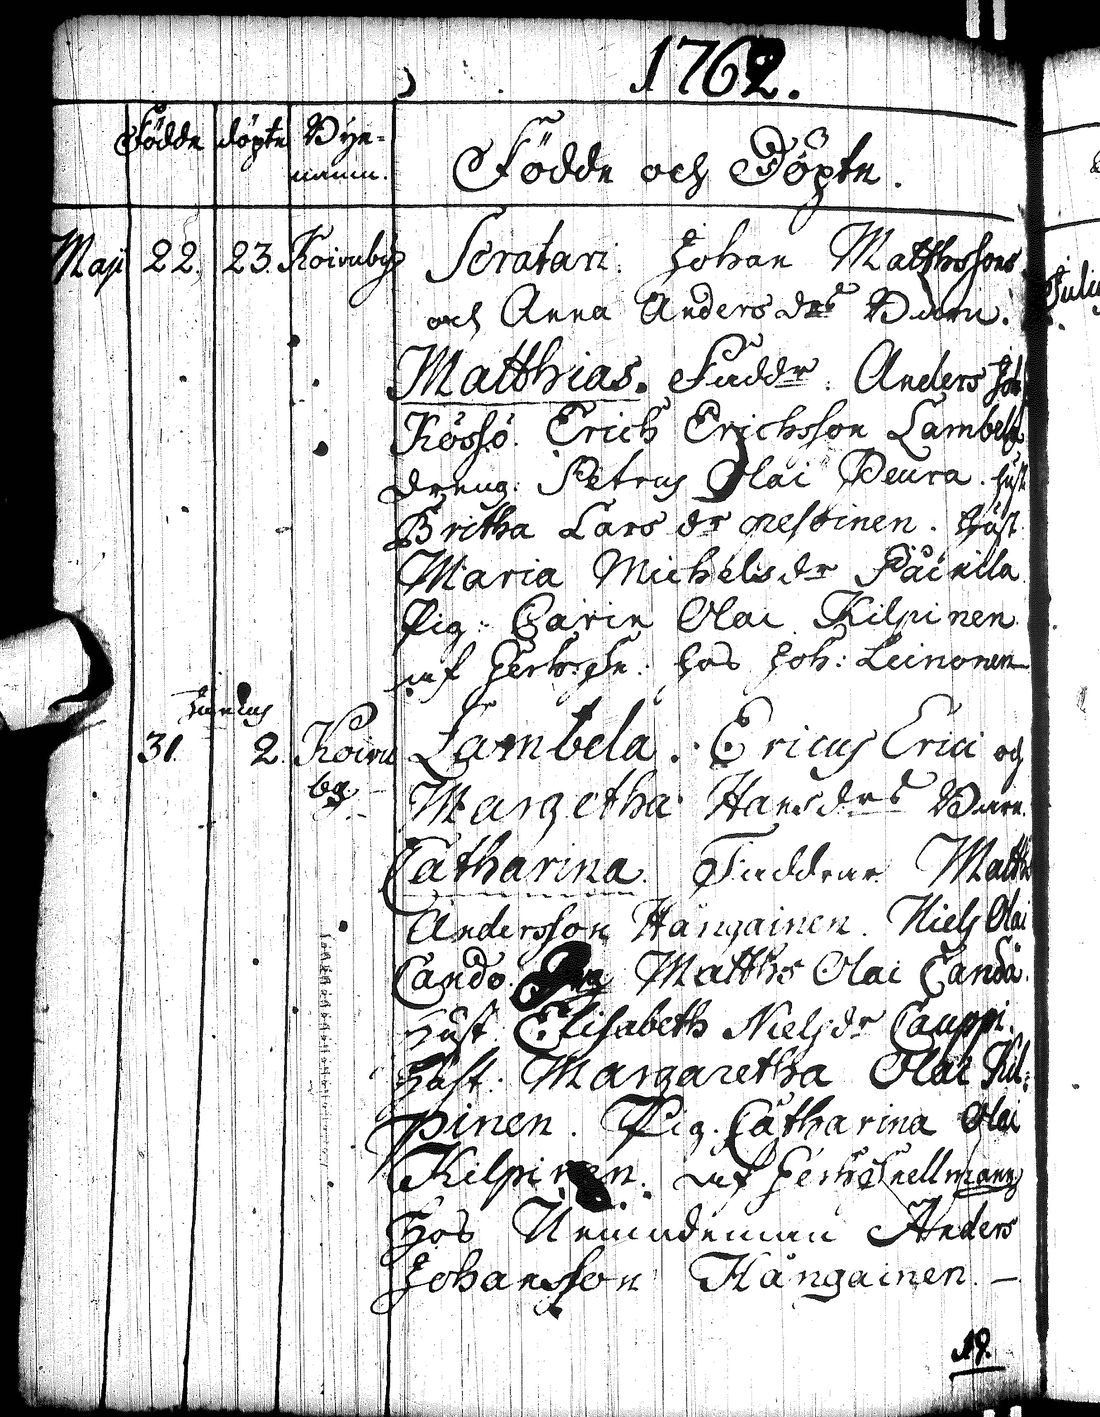 1762.
Födde döpte Byenamn. Födde och Döpte.
Maji 22. 23. Koivuby Seratari. Johan Matthssons
och Anna Andersdrs Barn.
Matthias. Faddr: Anders Joh
Kössö. Erich Erichsson Lambela
dreng: Petrus Olai Peura. Hust
Britha Lars dr Heskinen. Hust
Maria Michelsdr Päckilla
Pig: Carin Olai Kilpinen
af hos Joh: Leinonen
Junius
31. 2. Koivu Lambela. Ericus Erici och
by. Margetha Hansdrs Barn.
Catharina. Faddrar Matth
Andersson Hängainen. Niels Olai
Cando. Matths Olai Canda.
Hust Elisabeth Nielsdr Cauppi.
Hust. Margaretha Olai Kil:
pinen. Pig. Catharina Olai
Kilpinen. af Snellmann
Hos Nemndeman Anders
Johansson Hängainen. –
19.